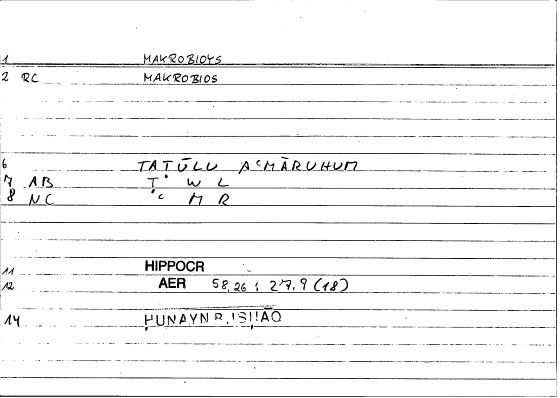 1 MAKROBIOYS
2 RC MAKROBIOS
6 TAṬŪLU AʿMĀRUHUM
7 AB Ṭ W L
8 NC ʿ M R
11 HIPPOCR
12 AER 58,26 : 27.9 (18)
14 ḤUNAYN B. ISḤĀQ